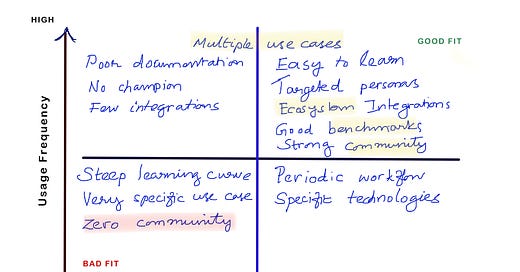 HIGH
Multiple use cases
GOOD FIT
Poor documentation
No champion
Few integrations
Easy to learn
Targeted personas
Ecosystem Integrations
Good benchmarks
Strong community
Usage Frequency
Steep learning curve
Very specific use case
Zero community
Periodic workflow
Specific technologies
BAD FIT